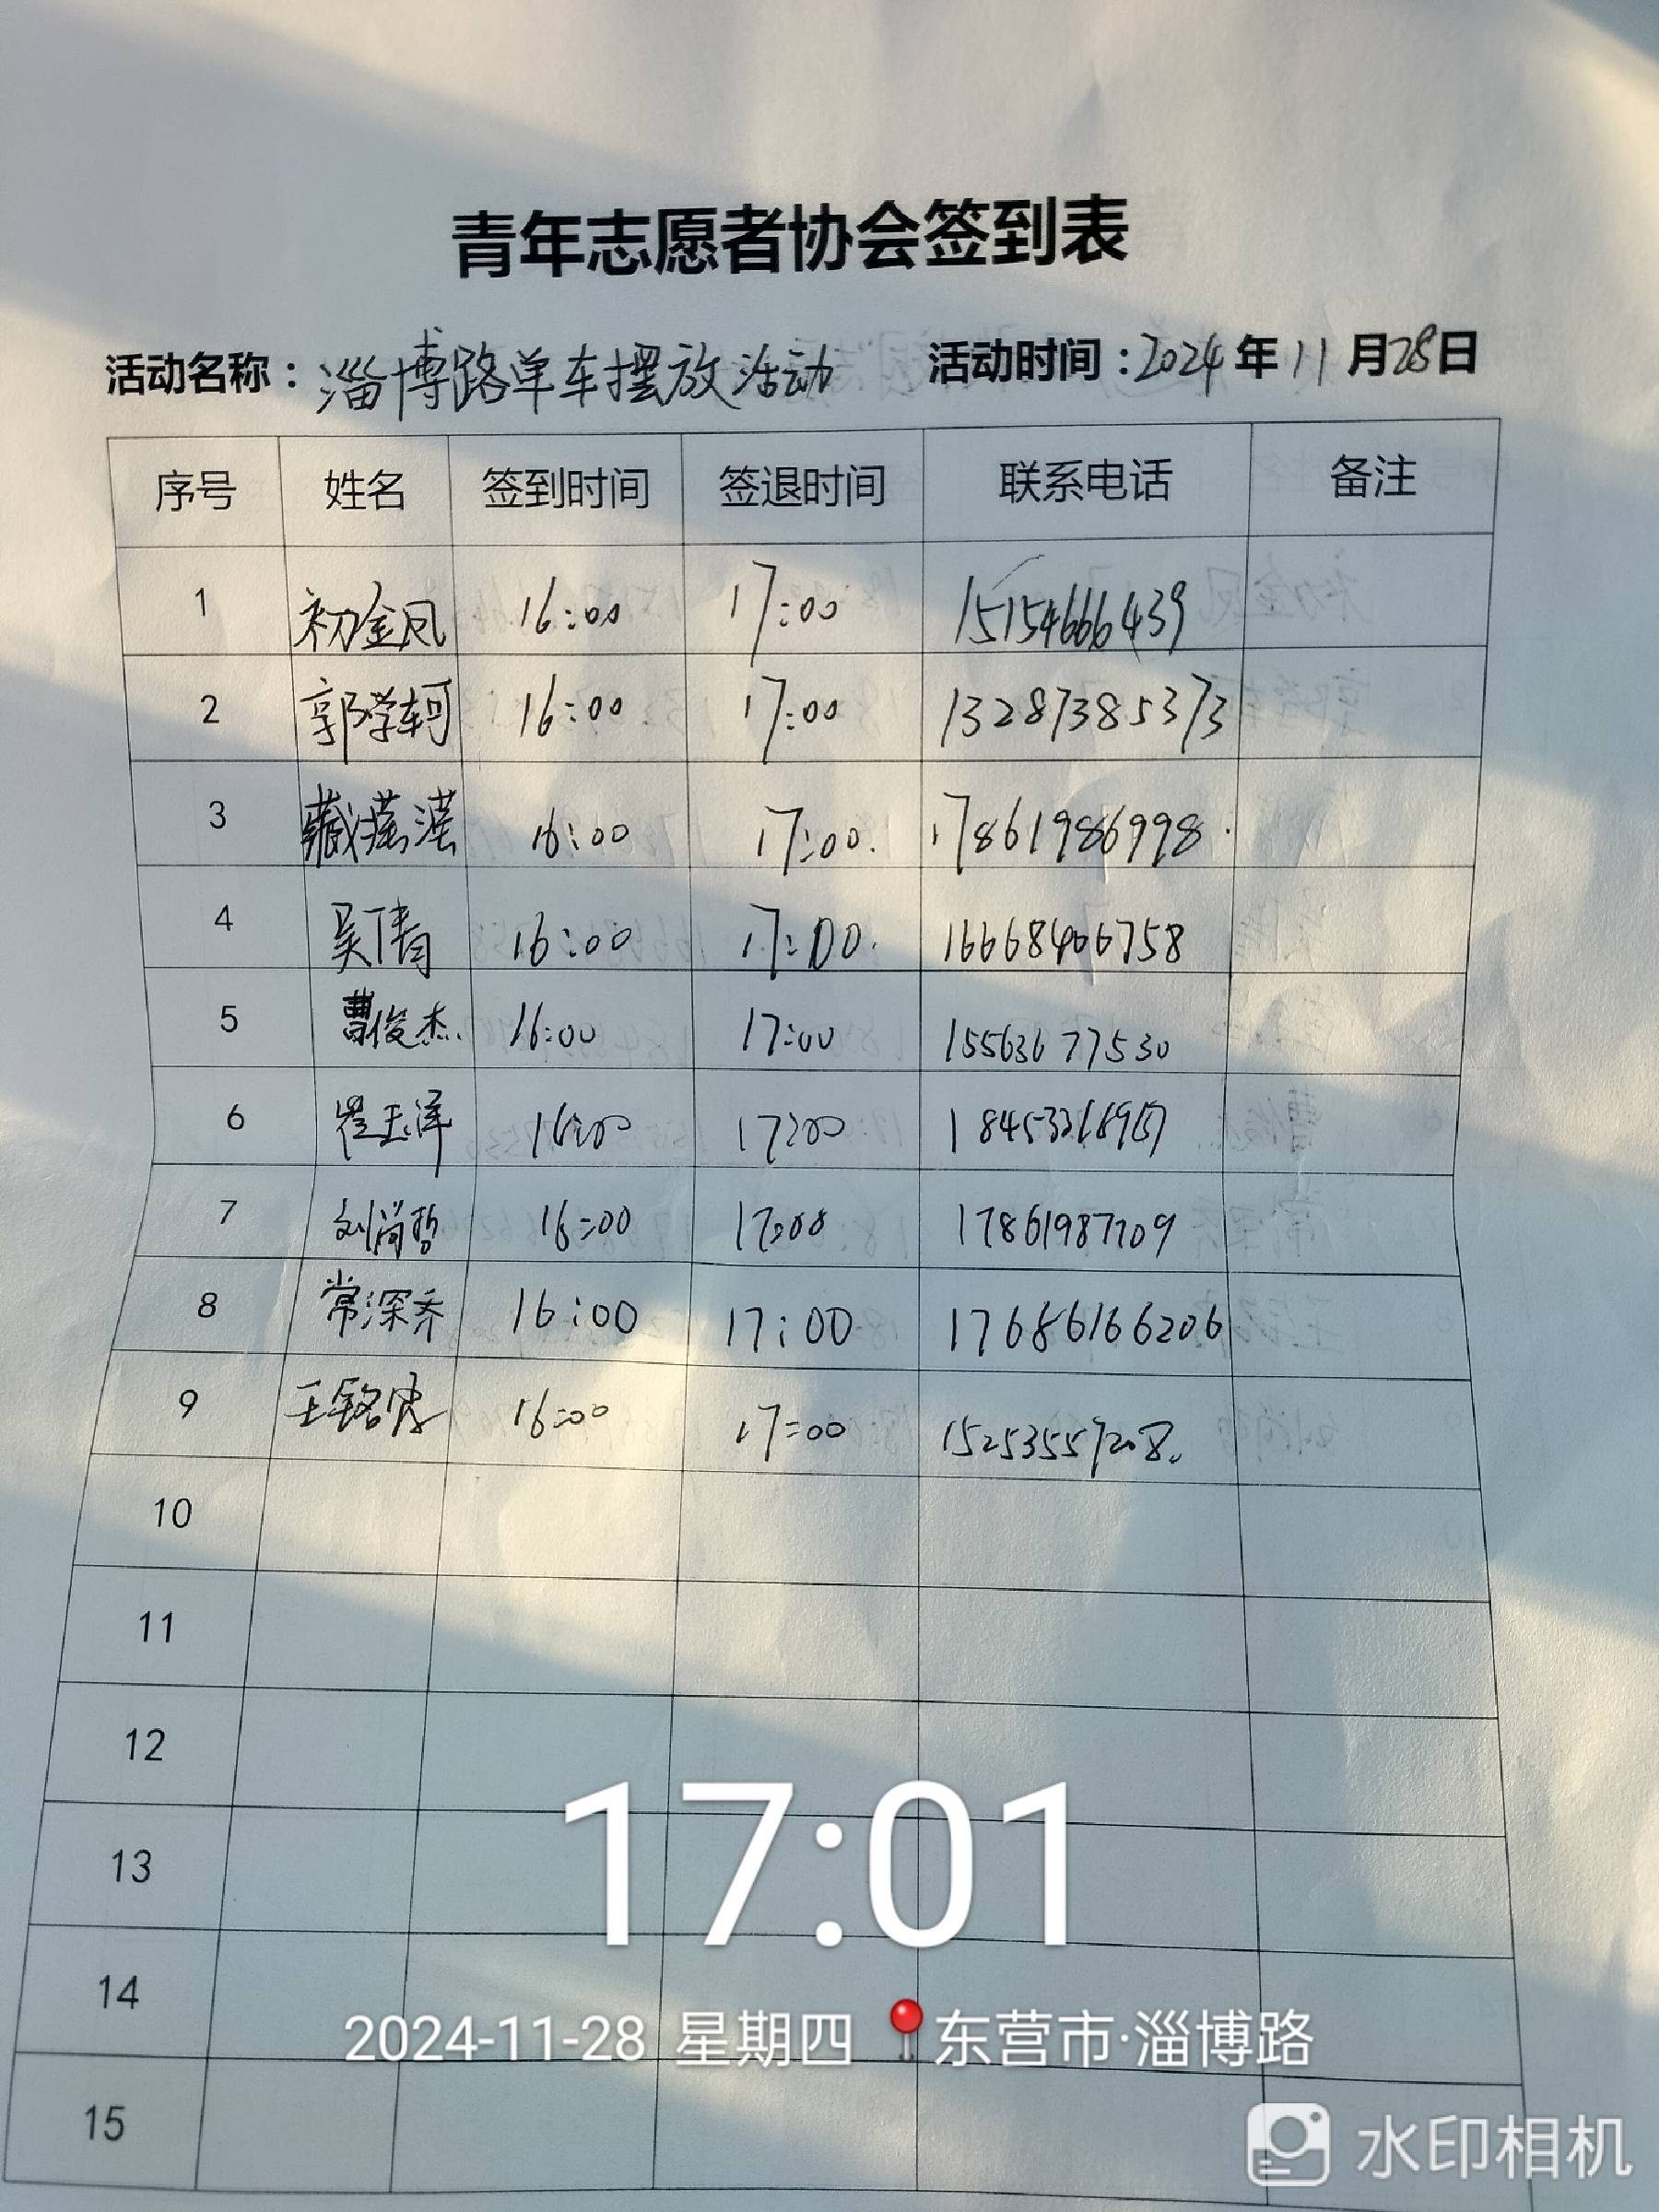 青年志愿者协会签到表
活动名称：淄博路单车摆放活动 活动时间：2024年11月28日
序号 姓名 签到时间 签退时间 联系电话 备注
1 初金凤 16:00 17:00 15154666439
2 郭学轲 16:00 17:00 13287385373
3 16:00 17:00. 17861986998.
4 吴倩 16:00 17:00. 16668406758
5 曹俊杰 16:00 17:00 15563677530
6 崔玉洋 16:00 17:00
7 刘尚哲 16:00 17:00 17861987709
8 常深乔 16:00 17:00 17686166206
9 16:00 17:00 15253557208.
10
11
12
13
14
15
17:01
2024-11-28 星期四 东营市·淄博路
水印相机